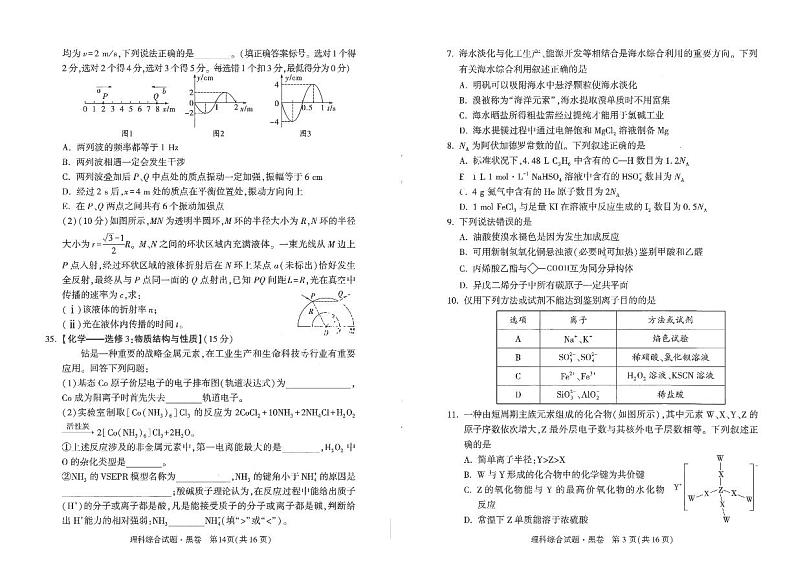 均为 v=2 m/s,下列说法正确的是________。(填正确答案标号。选对1个得
2分,选对2个得4分,选对3个得5分。每选错1个扣3分,最低得分为0分)
a b
P Q
0 1 2 3 4 5 6 7 8 x/m
图1
y/cm
2
0
-2
1 2 x/m
图2
y/cm
4
0
-4
0.5 1 t/s
图3
A. 两列波的频率都等于1 Hz
B. 两列波相遇一定会发生干涉
C. 两列波叠加后P、Q中点处的质点振动一定加强,振幅等于6 cm
D. 经过2 s后,x=4 m处的质点在平衡位置处,振动方向向上
E. 在P、Q两点之间共有6个振动加强点
(2)(10分)如图所示,MN为透明半圆环,M环的半径大小为R,N环的半径
大小为r=(√3-1)/2 R。M、N之间的环状区域内充满液体。一束光线从M边上
P点入射,经过环状区域的液体折射后在N环上某点a(未标出)恰好发生
全反射,最终从与P点同一面的Q点射出,已知PQ间距L=R,光在真空中
传播的速率为c,求:
(ⅰ)该液体的折射率n;
(ⅱ)光在液体内传播的时间t。
P Q
R
35. 【化学——选修3:物质结构与性质】(15分)
钴是一种重要的战略金属元素,在工业生产和生命科技专行业有重要
应用。回答下列问题:
(1)基态Co原子价层电子的电子排布图(轨道表达式)为________,
Co成为阳离子时首先失去________轨道电子。
(2)实验室制取[Co(NH₃)₆]Cl₃的反应为2CoCl₂+10NH₃+2NH₄Cl+H₂O₂
活性炭
2[Co(NH₃)₆]Cl₃+2H₂O。
①上述反应涉及的非金属元素中,第一电离能最大的是________,H₂O₂中
O的杂化类型是________。
②NH₃的VSEPR模型名称为________,NH₃的键角小于NH₄⁺的原因是
________;酸碱质子理论认为,在反应过程中能给出质子
(H⁺)的分子或离子都是酸,凡是能接受质子的分子或离子都是碱,判断给
出H⁺能力的相对强弱:NH₃________NH₄⁺(填“>”或“<”)。
理科综合试题·黑卷 第14页(共16页)
7. 海水淡化与化工生产、能源开发等相结合是海水综合利用的重要方向。下列
有关海水综合利用叙述正确的是
A. 明矾可以吸附海水中悬浮颗粒使海水淡化
B. 溴被称为“海洋元素”,海水提取溴单质时不用富集
C. 海水晒盐所得粗盐需经过提纯才能用于氯碱工业
D. 海水提镁过程中通过电解饱和MgCl₂溶液制备Mg
8. Nₐ为阿伏加德罗常数的值。下列叙述正确的是
A. 标准状况下,4.48 L C₂H₆中含有的C—H数目为1.2Nₐ
1 L 1 mol·L⁻¹ NaHSO₄溶液中含有的HSO₄⁻数目为Nₐ
C. 4 g氦气中含有的He原子数目为2Nₐ
D. 1 mol FeCl₃与足量KI在溶液中反应生成的I₂数目为0.5Nₐ
9. 下列说法错误的是
A. 油酸使溴水褪色是因为发生加成反应
B. 可用新制氢氧化铜悬浊液(必要时可加热)鉴别甲酸和乙醛
C. 丙烯酸乙酯与◇—COOH互为同分异构体
D. 异戊二烯分子中所有碳原子一定共平面
10. 仅用下列方法或试剂不能达到鉴别离子目的的是
选项 离子 方法或试剂
A Na⁺、K⁺ 焰色试验
B SO₃²⁻、SO₄²⁻ 稀硝酸、氯化钡溶液
C Fe²⁺、Fe³⁺ H₂O₂溶液、KSCN溶液
D SiO₃²⁻、AlO₂⁻ 稀盐酸
11. 一种由短周期主族元素组成的化合物(如图所示),其中元素W、X、Y、Z的
原子序数依次增大,Z最外层电子数与其核外电子层数相等。下列叙述正
确的是
A. 简单离子半径:Y>Z>X
B. W与Y形成的化合物中的化学键为共价键
C. Z的氧化物能与Y的最高价氧化物的水化物
反应
D. 常温下Z单质能溶于浓硫酸
W
X
Y⁺ W X Z X W
X
W
理科综合试题·黑卷 第3页(共16页)